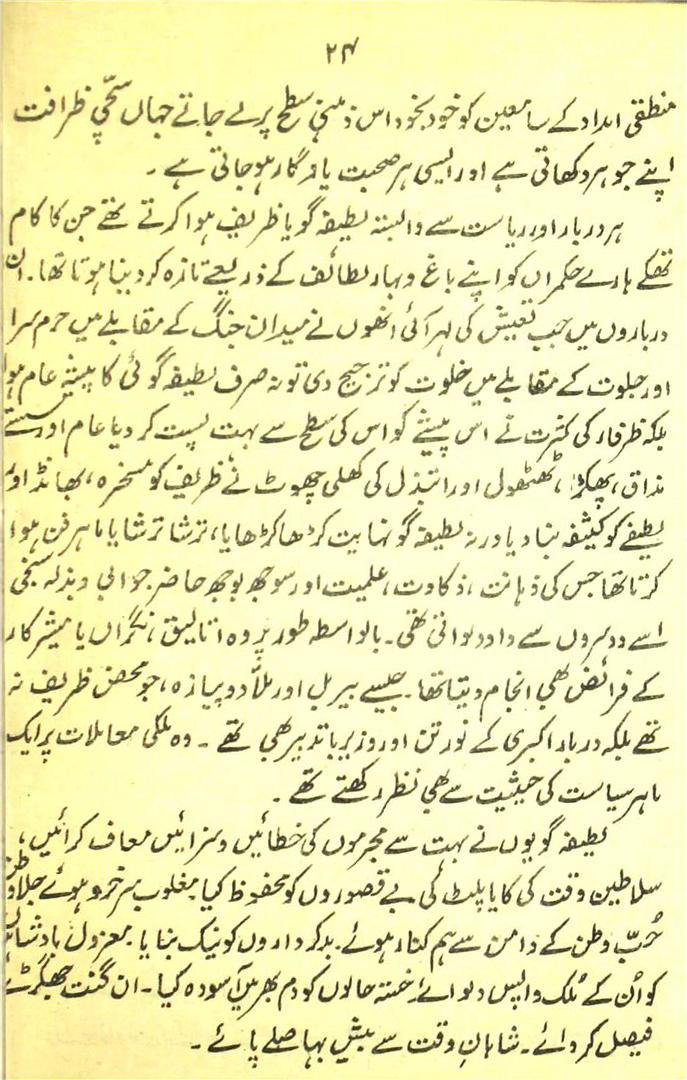 ۲۴
منطقی امداد کے سامعین کو خود بخود اس ذہنی سطح پر لے جاتے جہاں سچی ظرافت
اپنے جوہر دکھاتی ہے اور ایسی ہر صحبت یادگار ہو جاتی ہے ۔
ہر دربار اور ریاست سے وابستہ لطیفہ گو یا ظریف ہوا کرتے تھے جن کا کام
تھکے ہارے حکمراں کو اپنے باغ و بہار لطائف کے ذریعے تازہ کر دینا ہوتا تھا۔ ان
درباروں میں جب تعیش کی لہر آئی انھوں نے میدان جنگ کے مقابلے میں حرم سرا
اور جلوت کے مقابلے میں خلوت کو ترجیح دی تو نہ صرف لطیفہ گوئی کا پیشہ عام ہوا
بلکہ ظرفاء کی کثرت نے اس پیشے کو اس کی سطح سے بہت پست کر دیا عام اور سستے
مذاق، پھکڑ، ٹھٹھول اور ابتذل کی کھلی چھوٹ نے ظریف کو مسخرہ، بھانڈ اور
لطیفے کو کثیفہ بنا دیا ورنہ لطیفہ گو نہایت کڑھا کڑھایا، ترشا ترشایا ماہر فن ہوا
کرتا تھا جس کی ذہانت، ذکاوت، علمیت اور سوجھ بوجھ حاضر جوابی و بذلہ سنجی
اسے دوسروں سے داد دلواتی تھی۔ بالواسطہ طور پر وہ اتالیق، نگراں یا مشیر کار
کے فرائض بھی انجام دیتا تھا۔ جیسے بیربل اور ملّا دوپیازہ، جو محض ظریف نہ
تھے بلکہ دربار اکبری کے نورتن اور وزیر با تدبیر بھی تھے ۔ وہ ملکی معاملات پر ایک
ماہر سیاست کی حیثیت سے بھی نظر رکھتے تھے ۔
لطیفہ گویوں نے بہت سے مجرموں کی خطائیں و سزائیں معاف کرائیں،
سلاطین وقت کی کایا پلٹ کی بے قصوروں کو محفوظ کیا۔ مغلوب سرخرو ہوئے جلاوطن
حُبّ وطن کے دامن سے ہم کنار ہوئے۔ بدکرداروں کو نیک بنایا۔ معزول بادشاہوں
کو اُن کے مُلک واپس دلوائے خستہ حالوں کو دم بھر میں آسودہ کیا۔ ان گنت جھگڑے
فیصل کروائے۔ شاہانِ وقت سے بیش بہا صلے پائے ۔